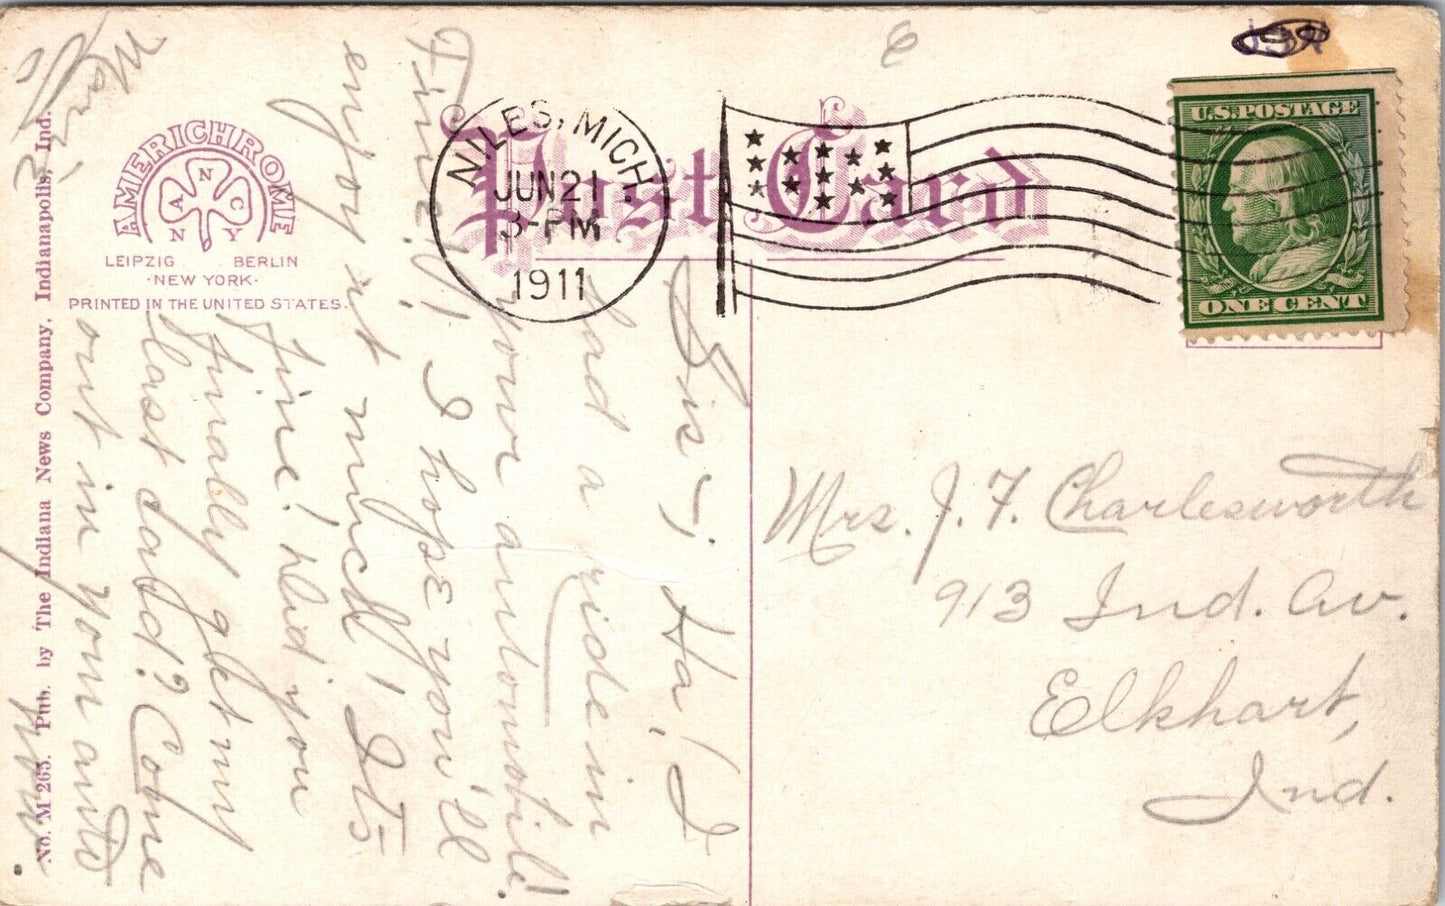 Post Card
NILES, MICH.
JUN 21
3-PM
1911
U.S. POSTAGE
ONE CENT
AMERICHROME
A N C
N Y
LEIPZIG BERLIN
·NEW YORK·
PRINTED IN THE UNITED STATES.
No. M 265. Pub. by The Indiana News Company, Indianapolis, Ind.
Sis -, Ha! I
had a ride in
your automobile!
Fine!! I hope you'll
enjoy it much! Its
fine! Did you
finally get my
last card? Come
out in your auto
now
Marie
Mrs. J. F. Charlesworth
913 Ind. Av.
Elkhart,
Ind.